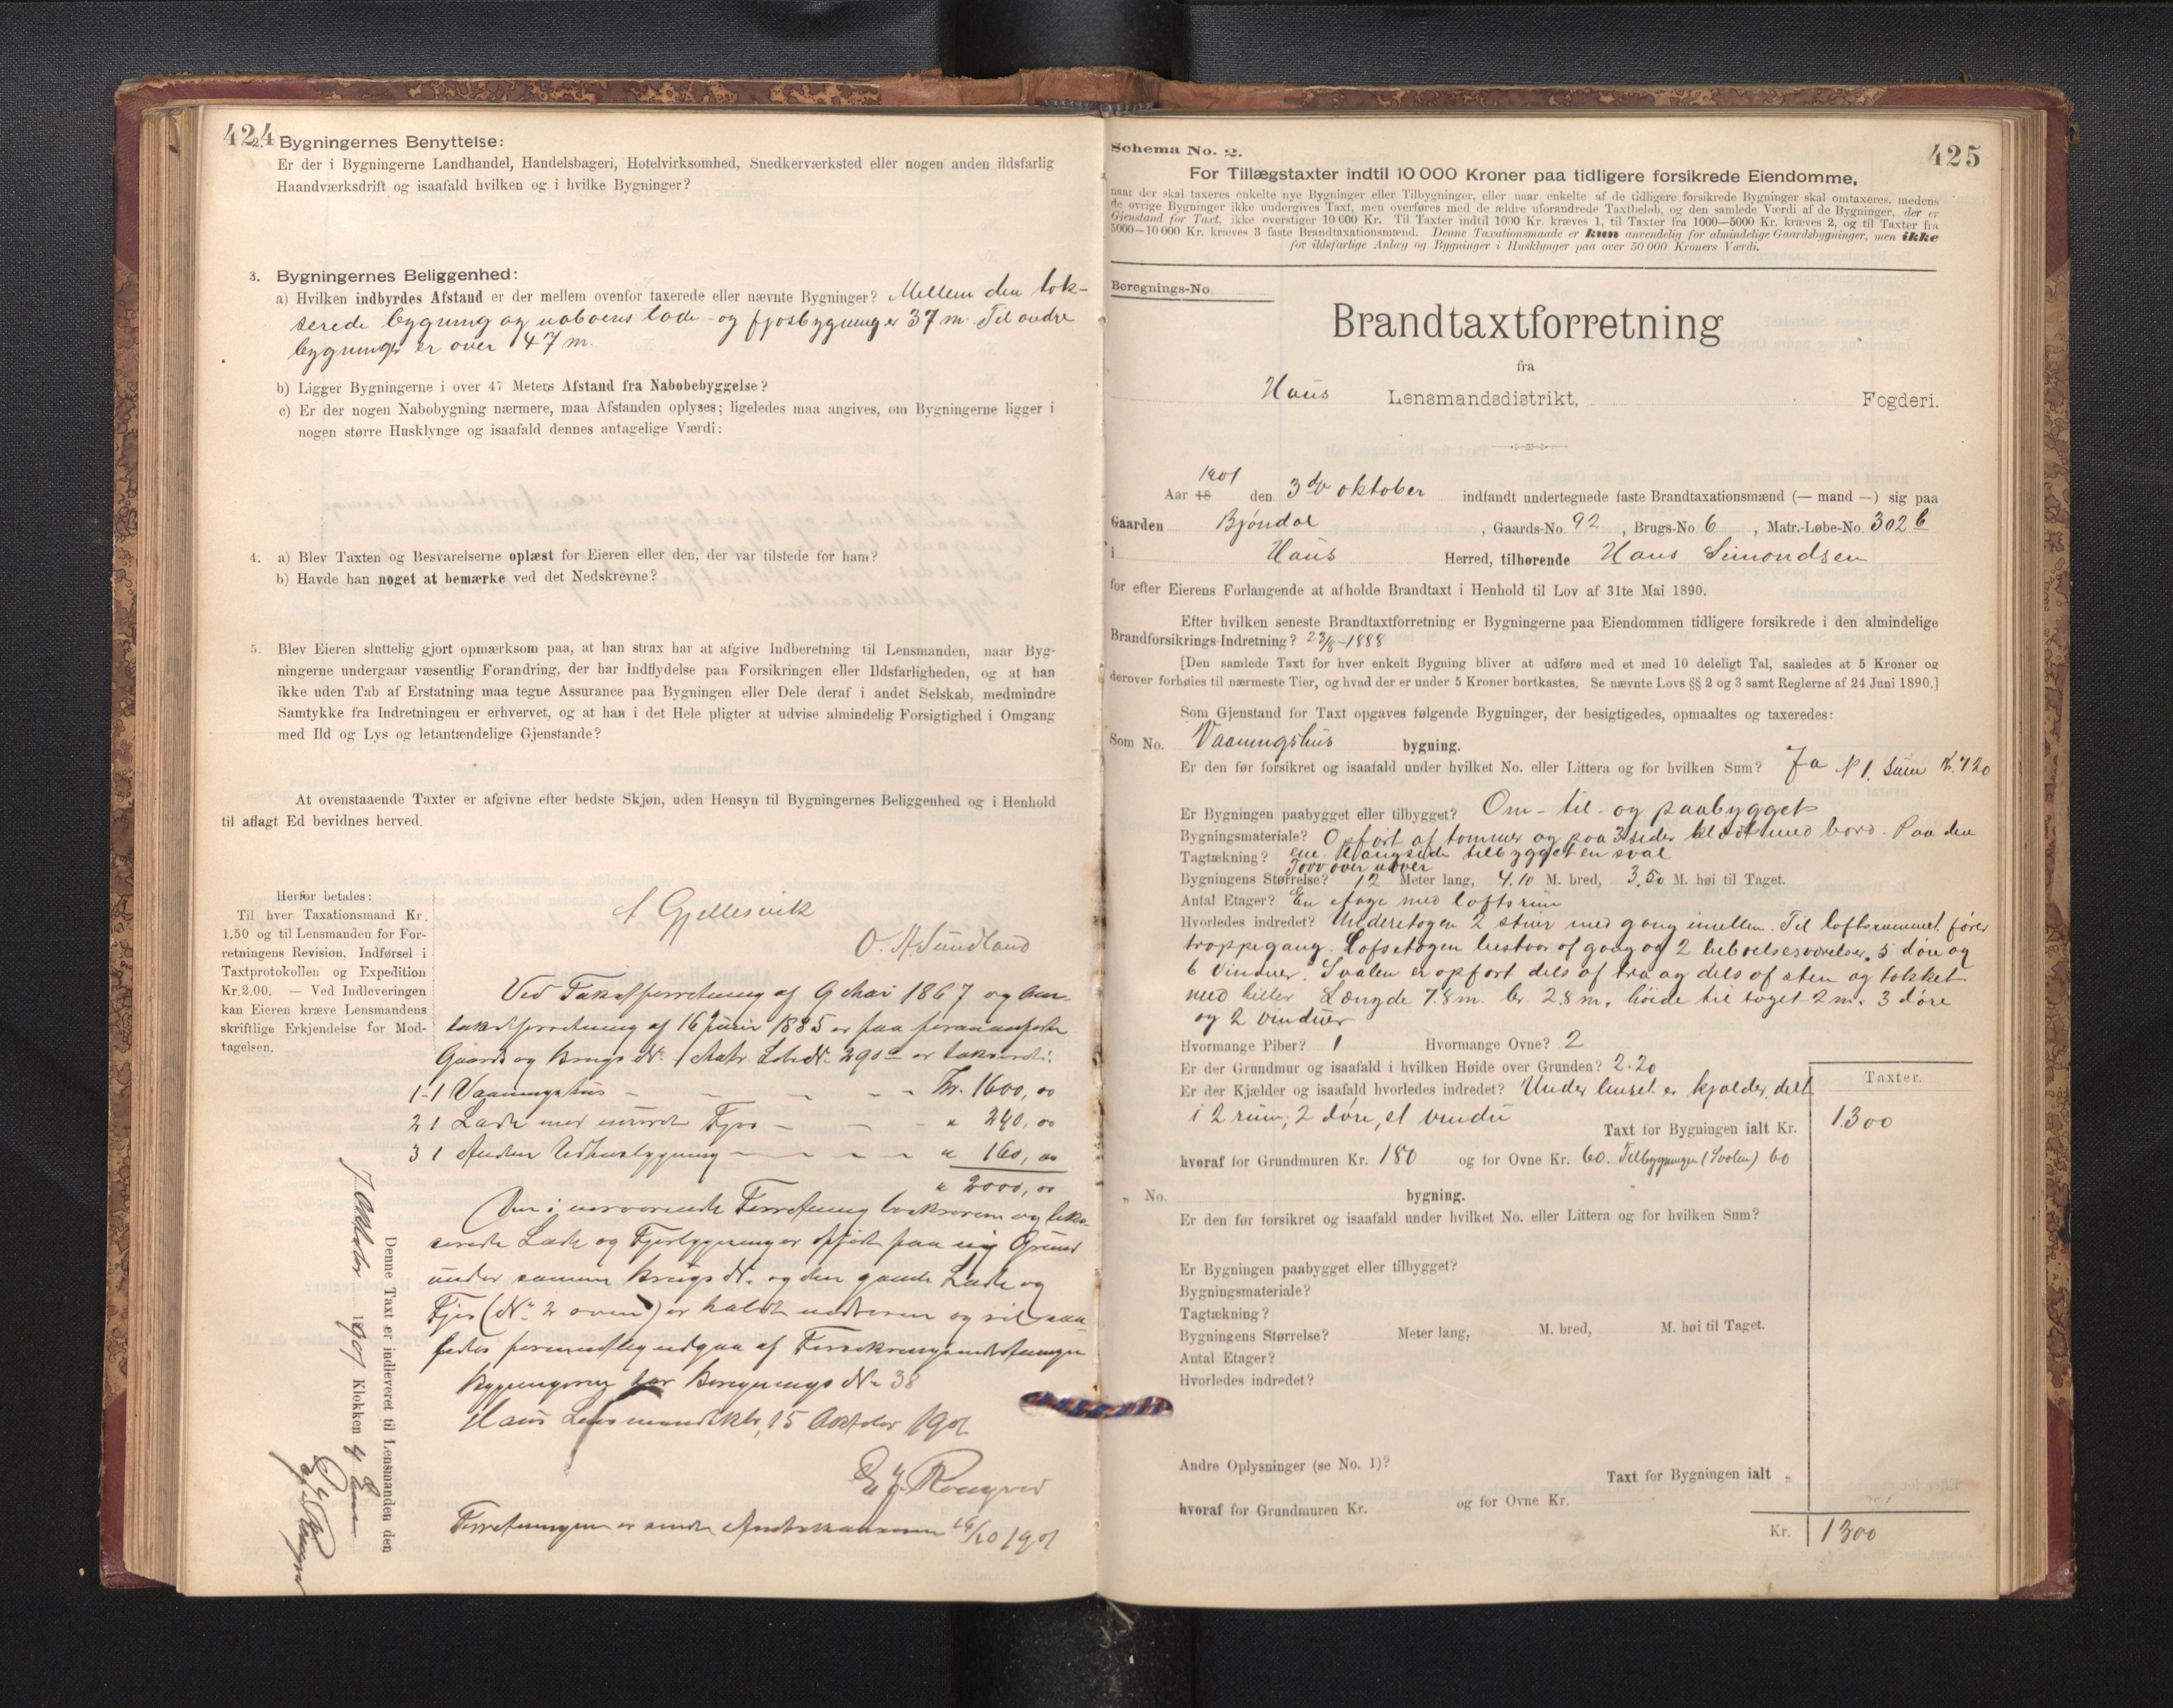 424
2. Bygningernes Benyttelse:
Er der i Bygningerne Landhandel, Handelsbageri, Hotelvirksomhed, Snedkerværksted eller nogen anden ildsfarlig
Haandværksdrift og isaafald hvilken og i hvilke Bygninger?
3. Bygningernes Beliggenhed:
a) Hvilken indbyrdes Afstand er der mellem ovenfor taxerede eller nævnte Bygninger? Mellem den tak-
serede bygning og naboens lade- og fjosbygning er 37 m. Til andre
bygninger er over 47 m.
b) Ligger Bygningerne i over 47 Meters Afstand fra Nabobebyggelse?
c) Er der nogen Nabobygning nærmere, maa Afstanden oplyses; ligeledes maa angives, om Bygningerne ligger i
nogen større Husklynge og isaafald dennes antagelige Værdi:
4. a) Blev Taxten og Besvarelserne oplæst for Eieren eller den, der var tilstede for ham?
b) Havde han noget at bemærke ved det Nedskrevne?
5. Blev Eieren sluttelig gjort opmærksom paa, at han strax har at afgive Indberetning til Lensmanden, naar Byg-
ningerne undergaar væsentlig Forandring, der har Indflydelse paa Forsikringen eller Ildsfarligheden, og at han
ikke uden Tab af Erstatning maa tegne Assurance paa Bygningen eller Dele deraf i andet Selskab, medmindre
Samtykke fra Indretningen er erhvervet, og at han i det Hele pligter at udvise almindelig Forsigtighed i Omgang
med Ild og Lys og letantændelige Gjenstande?
At ovenstaaende Taxter er afgivne efter bedste Skjøn, uden Hensyn til Bygningernes Beliggenhed og i Henhold
til aflagt Ed bevidnes herved.
A Gjellesvik
O. A Sundland
Herfor betales:
Til hver Taxationsmand Kr.
1.50 og til Lensmanden for For-
retningens Revision, Indførsel i
Taxtprotokollen og Expedition
Kr. 2.00. — Ved Indleveringen
kan Eieren kræve Lensmandens
skriftlige Erkjendelse for Mod-
tagelsen.
Ved Takstforretning af 9 Mai 1867 og Om-
takstforretning af 16 Juni 1885 er paa forananførte
Gaards og Brugs No. Matr. Løb No. 290 a er takseret:
1-1 Vaaningshus - - - - Kr. 1600,00
2 1 Lade med Fjøs - - - " 240,00
3 1 Anden Udhusbygning - - - " 160,00
" 2000,00
Den i nærværende Forretning beskrevne og tak-
serede Lade og Fjøsbygning er opført paa ny Grund
under samme Brugs No. og den gamle Lade og
Fjøs (No. 2 oven) er nedreven og vil saa-
ledes udgaa af Forsikringsindretningen
Bygningerne har Beregnings No 38
Haus Lensmandsktr, 15 Oktober 1901
E J. Romyvei
Forretningen er sendt Amtskassereren 16/10 1901
Denne Taxt er indleveret til Lensmanden den
7 Oktober 1901 Klokken 4 Em
425
Schema No. 2.
For Tillægstaxter indtil 10 000 Kroner paa tidligere forsikrede Eiendomme,
naar der skal taxeres enkelte nye Bygninger eller Tilbygninger, eller naar enkelte af de tidligere forsikrede Bygninger skal omtaxeres, medens
de øvrige Bygninger ikke undergives Taxt, men overføres med de ældre uforandrede Taxtbeløb, og den samlede Værdi af de Bygninger, der er
Gjenstand for Taxt, ikke overstiger 10 000 Kr. Til Taxter indtil 1000 Kr. kræves 1, til Taxter fra 1000—5000 Kr. kræves 2, og til Taxter fra
5000—10 000 Kr. kræves 3 faste Brandtaxationsmænd. Denne Taxationsmaade er kun anvendelig for almindelige Gaardsbygninger, men ikke
for ildsfarlige Anlæg og Bygninger i Husklynger paa over 50 000 Kroners Værdi.
Beregnings-No.
Brandtaxtforretning
fra
Haus Lensmandsdistrikt, Fogderi.
Aar 18 1901 den 3die oktober indfandt undertegnede faste Brandtaxationsmænd (— mand —) sig paa
Gaarden Bjöndal, Gaards-No. 92, Brugs-No. 6, Matr.-Løbe-No. 302 b
i Haus Herred, tilhørende Hans Simondsen
for efter Eierens Forlangende at afholde Brandtaxt i Henhold til Lov af 31te Mai 1890.
Efter hvilken seneste Brandtaxtforretning er Bygningerne paa Eiendommen tidligere forsikrede i den almindelige
Brandforsikrings-Indretning? 23/8-1888
[Den samlede Taxt for hver enkelt Bygning bliver at udføre med et med 10 deleligt Tal, saaledes at 5 Kroner og
derover forhøies til nærmeste Tier, og hvad der er under 5 Kroner bortkastes. Se nævnte Lovs §§ 2 og 3 samt Reglerne af 24 Juni 1890.]
Som Gjenstand for Taxt opgaves følgende Bygninger, der besigtigedes, opmaaltes og taxeredes:
Som No. Vaaningshus bygning.
Er den før forsikret og isaafald under hvilket No. eller Littera og for hvilken Sum? Ja N 1. Sum Kr. 720
Er Bygningen paabygget eller tilbygget? Om- til- og paabygget
Bygningsmateriale? Opført af tømmer og paa 3 sider klædt med bord. Paa den
Tagtækning? ene langside tilbygget en sval
Bygningens Størrelse? 12 Meter lang, 4.10 M. bred, 3.50 M. høi til Taget.
Antal Etager? En etage med loftsrum
Hvorledes indredet? Underetagen 2 stuer med gang imellem. Til loftsrummet fører
trappegang. Loftsetagen bestaar af gang og 2 beboelsesværelser. 5 døre og
6 Vinduer. Svalen er opført dels af træ og dels af sten og tækket
med heller Længde 7.8 m. br. 2.8 m, höide til taget 2 m. 3 döre
og 2 vinduer
Hvormange Piber? 1 Hvormange Ovne? 2
Er der Grundmur og isaafald i hvilken Høide over Grunden? 2.20
Er der Kjælder og isaafald hvorledes indredet? Under huset er kjælder, delt
i 2 rum; 2 döre, et vindu
Taxter.
Taxt for Bygningen ialt Kr. 1300
hvoraf for Grundmuren Kr. 180 og for Ovne Kr. 60. Tilbygningen (Svalen) 60
" No. bygning.
Er den før forsikret og isaafald under hvilket No. eller Littera og for hvilken Sum?
Er Bygningen paabygget eller tilbygget?
Bygningsmateriale?
Tagtækning?
Bygningens Størrelse? Meter lang, M. bred, M. høi til Taget.
Antal Etager?
Hvorledes indredet?
Andre Oplysninger (se No. 1)?
Taxt for Bygningen ialt "
hvoraf for Grundmuren Kr. og for Ovne Kr.
Kr. 1300